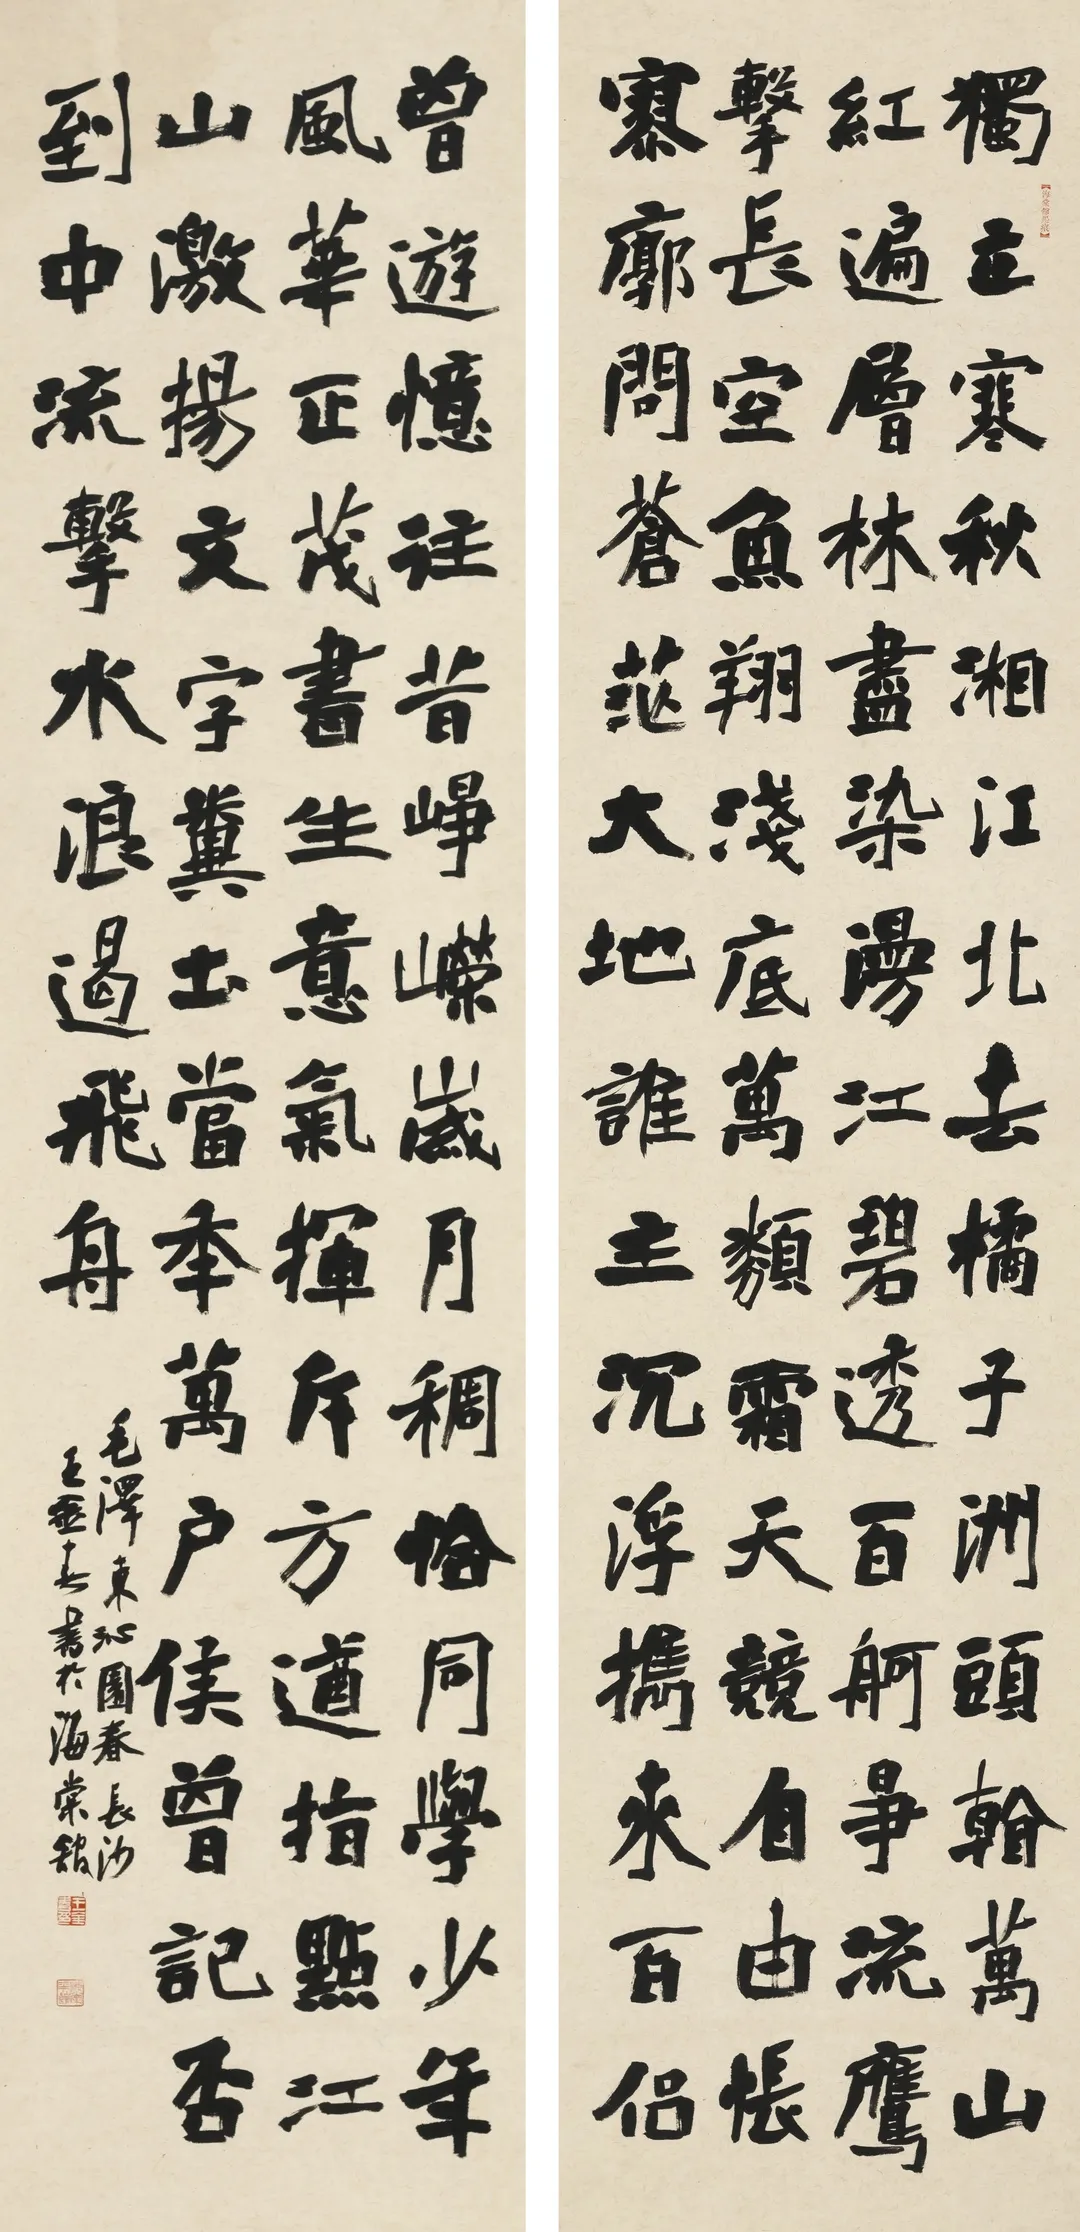 獨立寒秋湘江北去橘子洲頭看萬山
紅遍層林盡染漫江碧透百舸爭流鷹
擊長空魚翔淺底萬類霜天競自由悵
寥廓問蒼茫大地誰主沉浮攜來百侶
曾遊憶往昔崢嶸歲月稠恰同學少年
風華正茂書生意氣揮斥方遒指點江
山激揚文字糞土當年萬戶侯曾記否
到中流擊水浪遏飛舟
毛澤東沁園春長沙
王書於海棠館